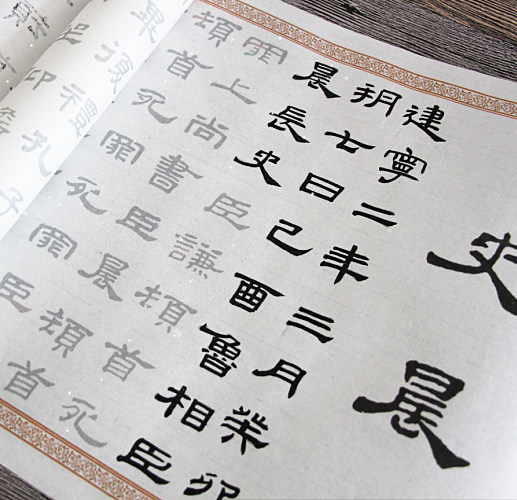 史晨
建寧二年三月癸卯
朔七日己酉魯相臣
晨長史臣謙頓首死
罪上尚書臣晨頓首
頓首死罪死罪臣
畢復禮孔子